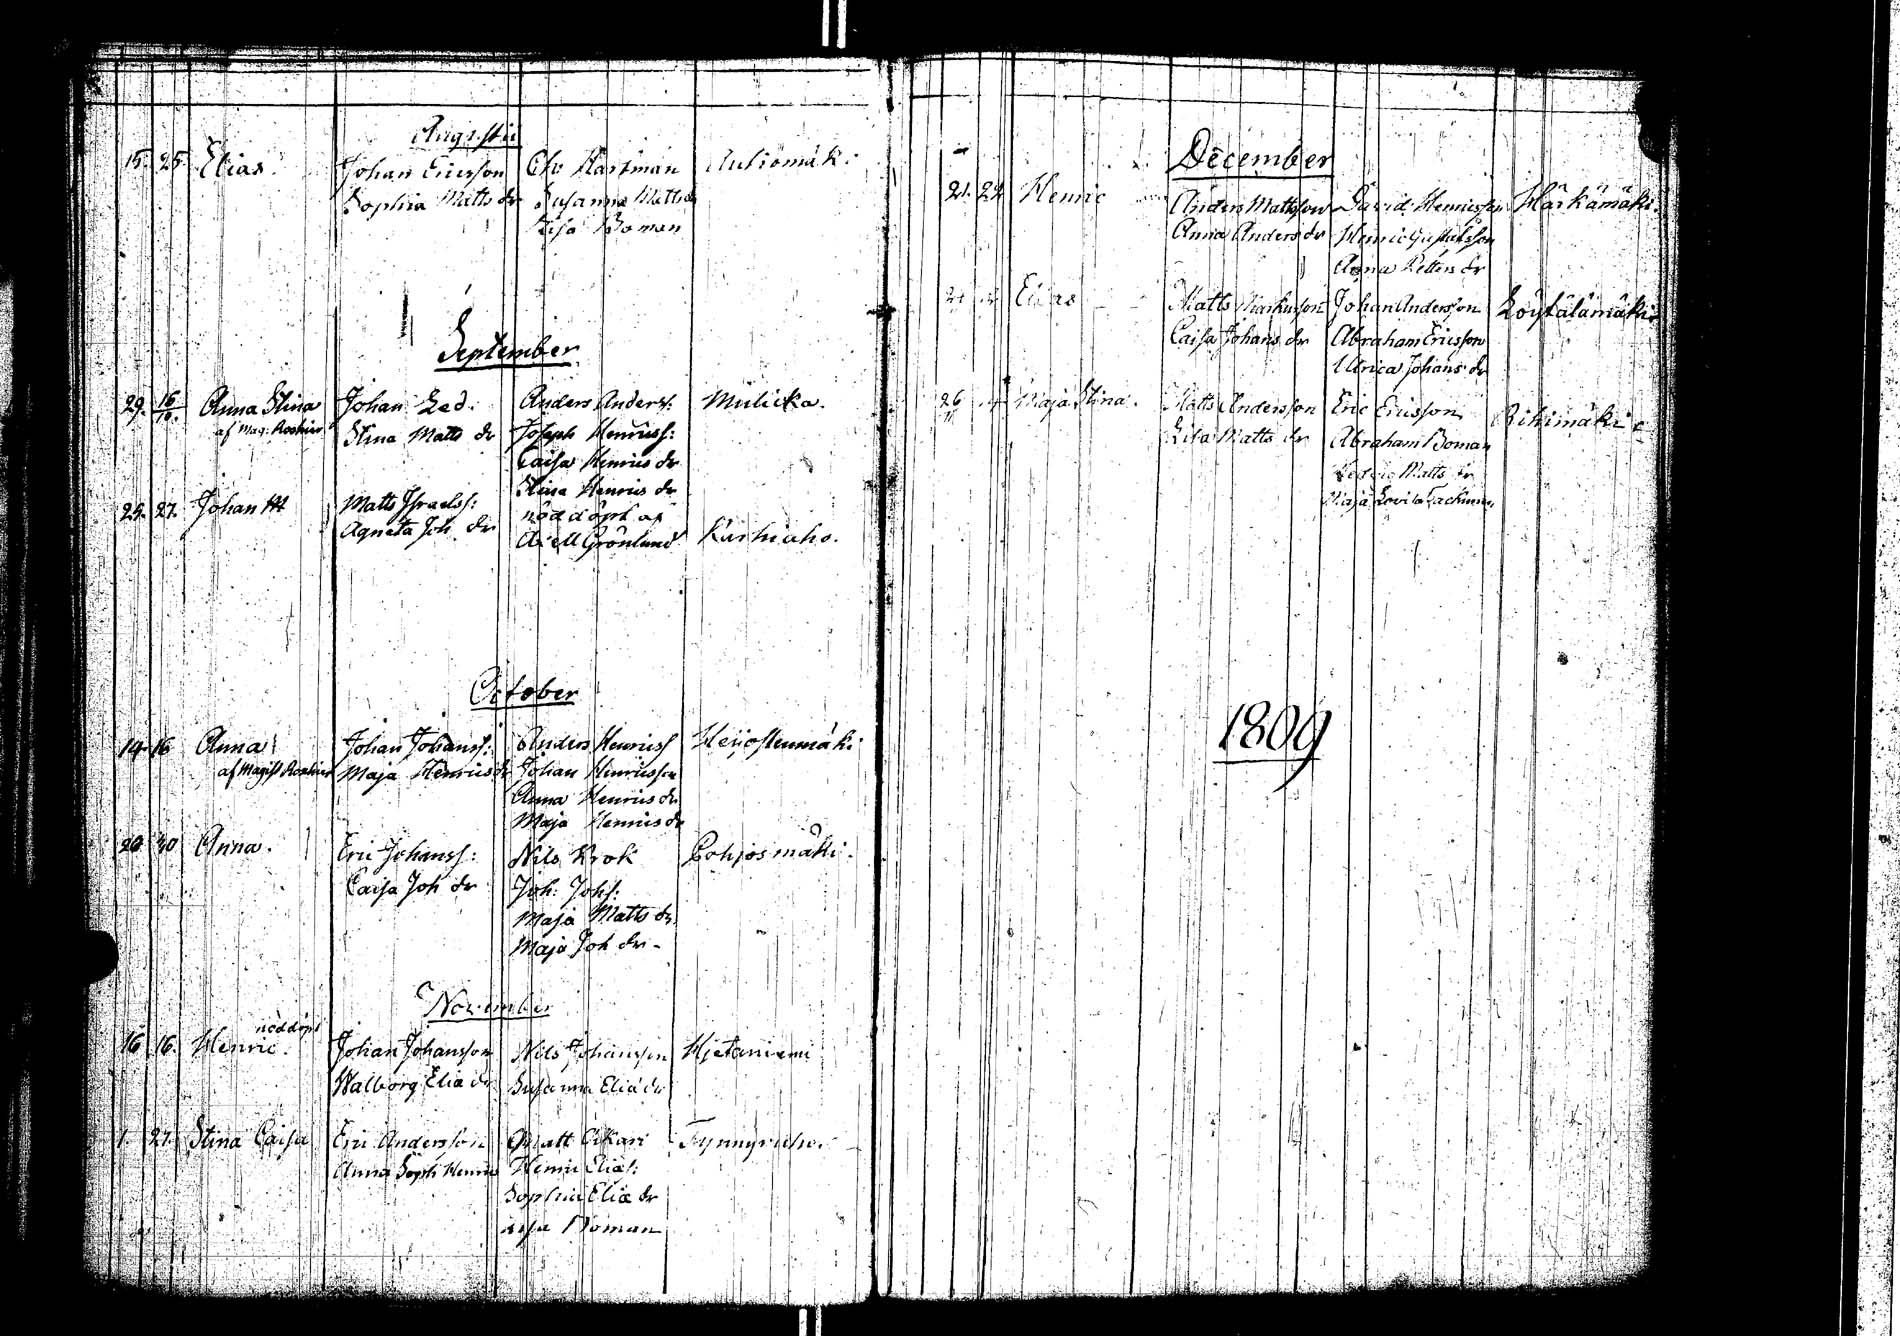 Augustii
15. 25. Elias. Johan Ericsson Chr Hartman Autiomäki
Sophia Matts dr Susanna Matts dr
Boman
September
29. 16/10. Anna Stina Johan Led. Anders Anderss: Mulicka.
af Mag: Roshier Stina Matts dr Joseph Henricss:
Caisa Henrics dr
Stina Henrics dr
25. 27. Johan Matts Israelss: nöddöpt af
Agneta Joh dr Grönlund Karhiaho.
October
14 16 Anna Johan Johanss: Anders Henricss
af Magist Roshier Maja Henrics dr Johan Henricsson
Anna Henrics dr
Maja Henrics dr
30 Anna. Eric Johanss: Nils Krok Pohjosmäki.
Caisa Joh dr Joh: Johs:
Maja Matts dr
Maja Joh dr
November
nöddöpt
16 16. Henric. Johan Johansson Nils Johansson Hjetaniemi
Walborg Elia dr Susanna Elia dr
1. 27. Stina Caisa Eric Andersson Matt
Anna Soph Henric Henric Elias:
Sophia Elia dr
Boman
December
21. 22 Henric Anders Mattsson David Henricsson Härkämäki.
Anna Anders dr Henric Gustafsson
Anna Petters dr
Elias Matts Markusson Johan Andersson Löytälämäki
Caisa Johans dr Abraham Ericsson
Ulrica Johans dr
26 Maja Stina. Matts Andersson Eric Ericsson Rihimäki
Matts dr Abraham Boman
Matts dr
Maja Lovisa
1809